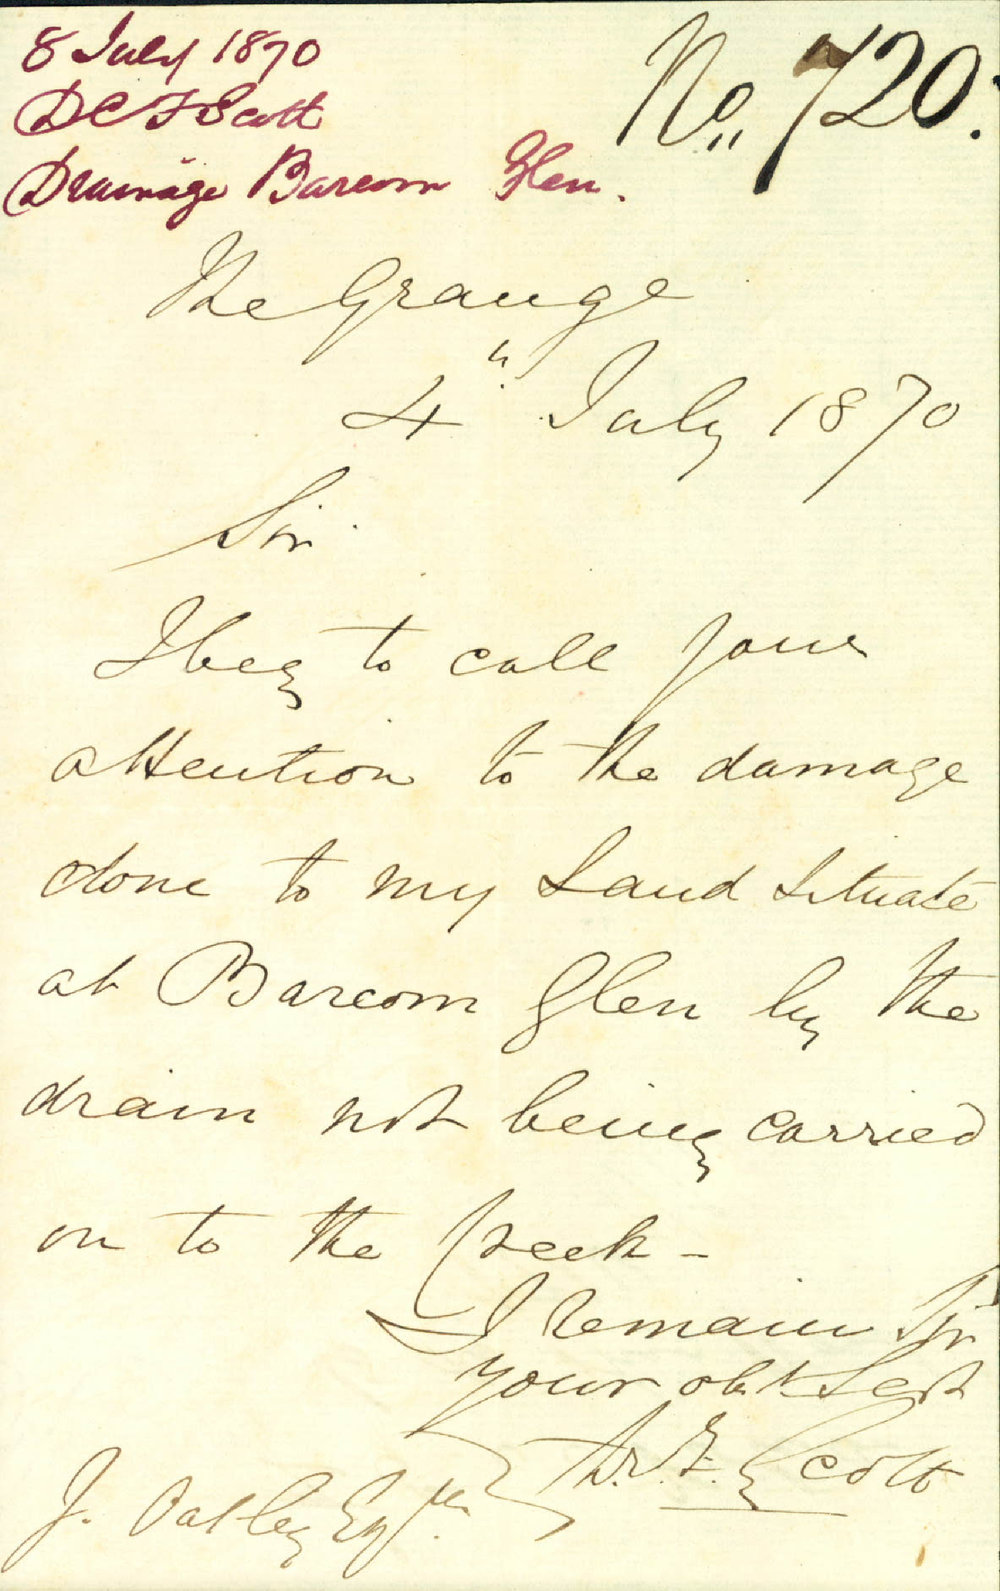 8 July 1870
D C F Scott
Drainage Barcom Glen.
No. 720.
The Grange
4" July 1870
Sir
I beg to call your
attention to the damage
done to my Land situate
at Barcom Glen by the
drain not being carried
on to the Creek -
I remain Sir
your obt Sert
D. C. F. Scott
J. Oatley Esqre.